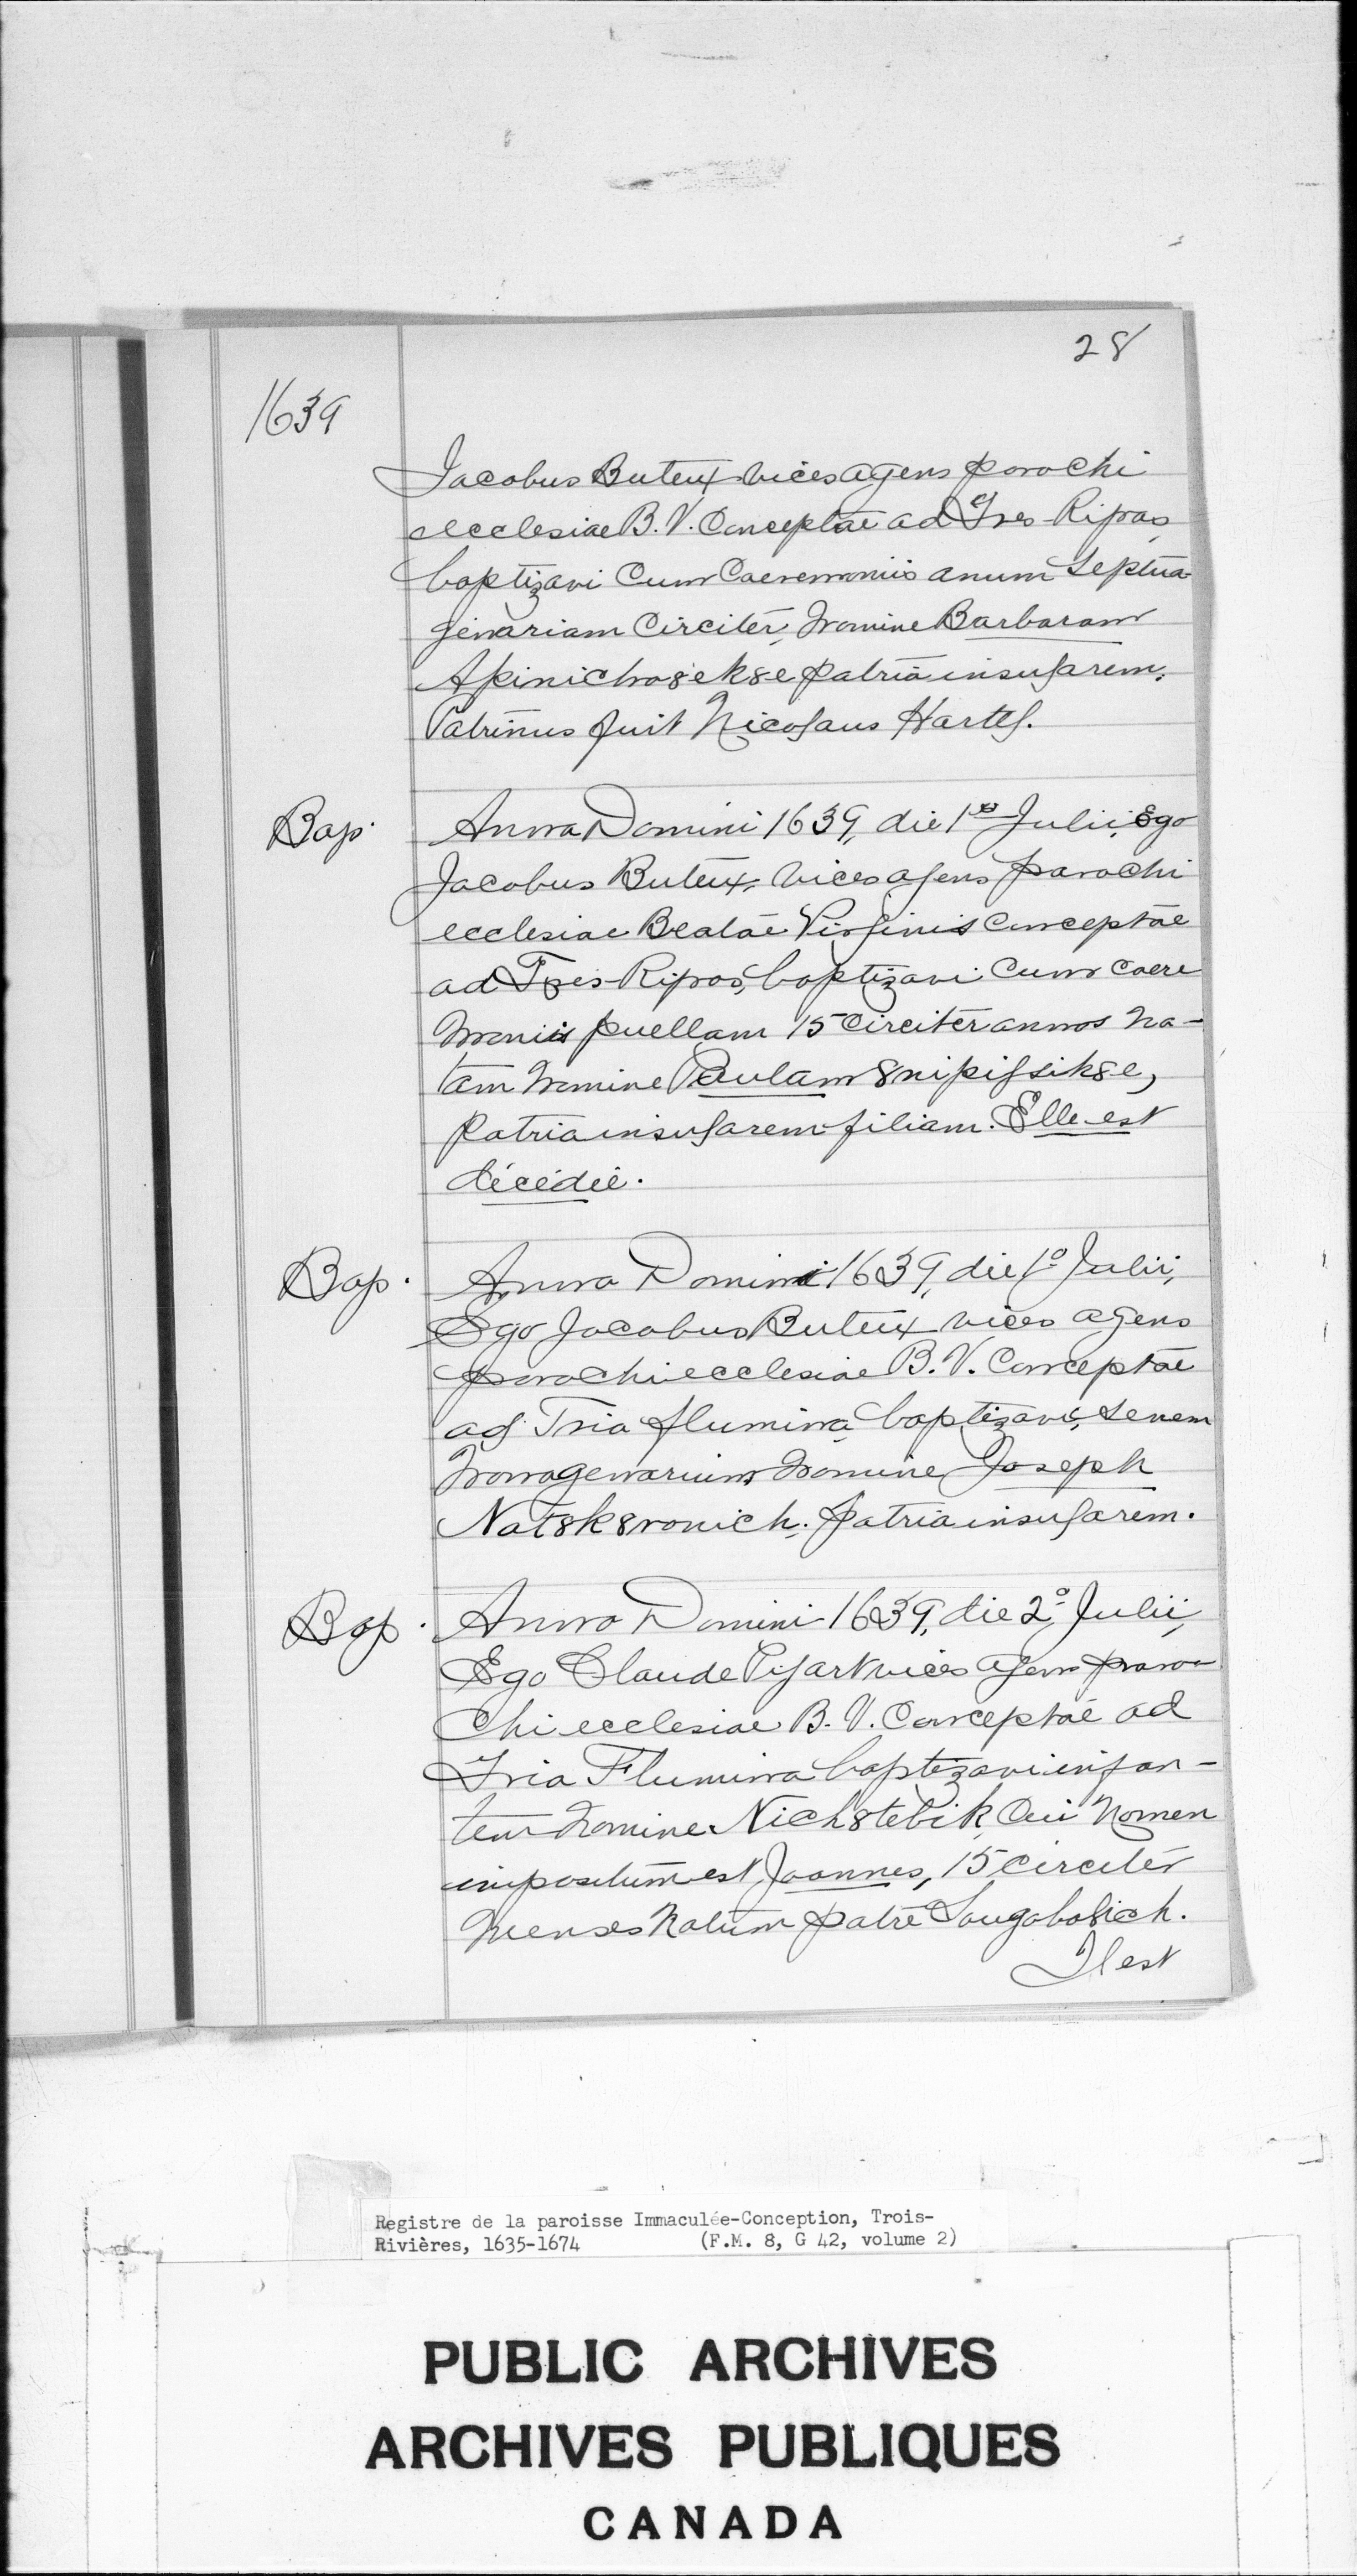 28
1639
Jacobus Buteux vices agens parochi
ecclesiae B. V. Conceptae ad Tres-Ripas,
baptizavi cum caeremoniis anum septua-
genariam circiter, nomine Barbaram
Apinicha8ek8e patria insularem.
Patrinus fuit Nicolaus Hartel.
Bap. Anno Domini 1639, die 1o Julii, Ego
Jacobus Buteux, vices agens parochi
ecclesiae Beatae Virginis Conceptae
ad Tres-Ripas, baptizavi cum caere
moniis puellam 15 circiter annos na-
tam nomine Paulam 8nipissik8e,
patria insularem filiam. Elle est
décédée.
Bap. Anno Domini 1639, die 1o Julii,
Ego Jacobus Buteux vices agens
parochi ecclesiae B. V. Conceptae
ad Tria flumina baptizavi, senem
nonagenarium nomine Joseph
Nat8k8ronich, patria insularem.
Bap. Anno Domini 1639, die 2o Julii,
Ego Claude Pijart vices agens paro-
chi ecclesiae B. V. Conceptae ad
Tria Flumina baptizavi infan-
tem nomine Nich8tebik, cui nomen
impositum est Joannes, 15 circiter
menses natum patre Saugaba8ich.
Il est
Registre de la paroisse Immaculée-Conception, Trois-
Rivières, 1635-1674 (F.M. 8, G 42, volume 2)
PUBLIC ARCHIVES
ARCHIVES PUBLIQUES
CANADA